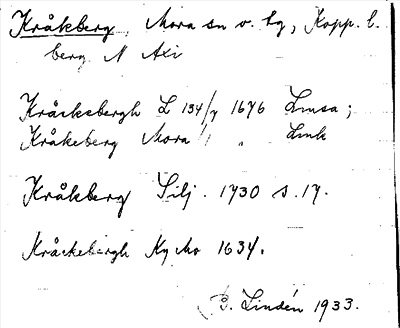 Kråkberg, Mora sn o. tg, Kopp. l.
berg N Axi
Kråckebergh L 134/7 1676 Lmsa;
Kråkeberg Mora " " Lmk
Kråkberg Silj. 1730 s. 17.
Kråckebergh Ky Mo 1634.
B. Lindén 1933.